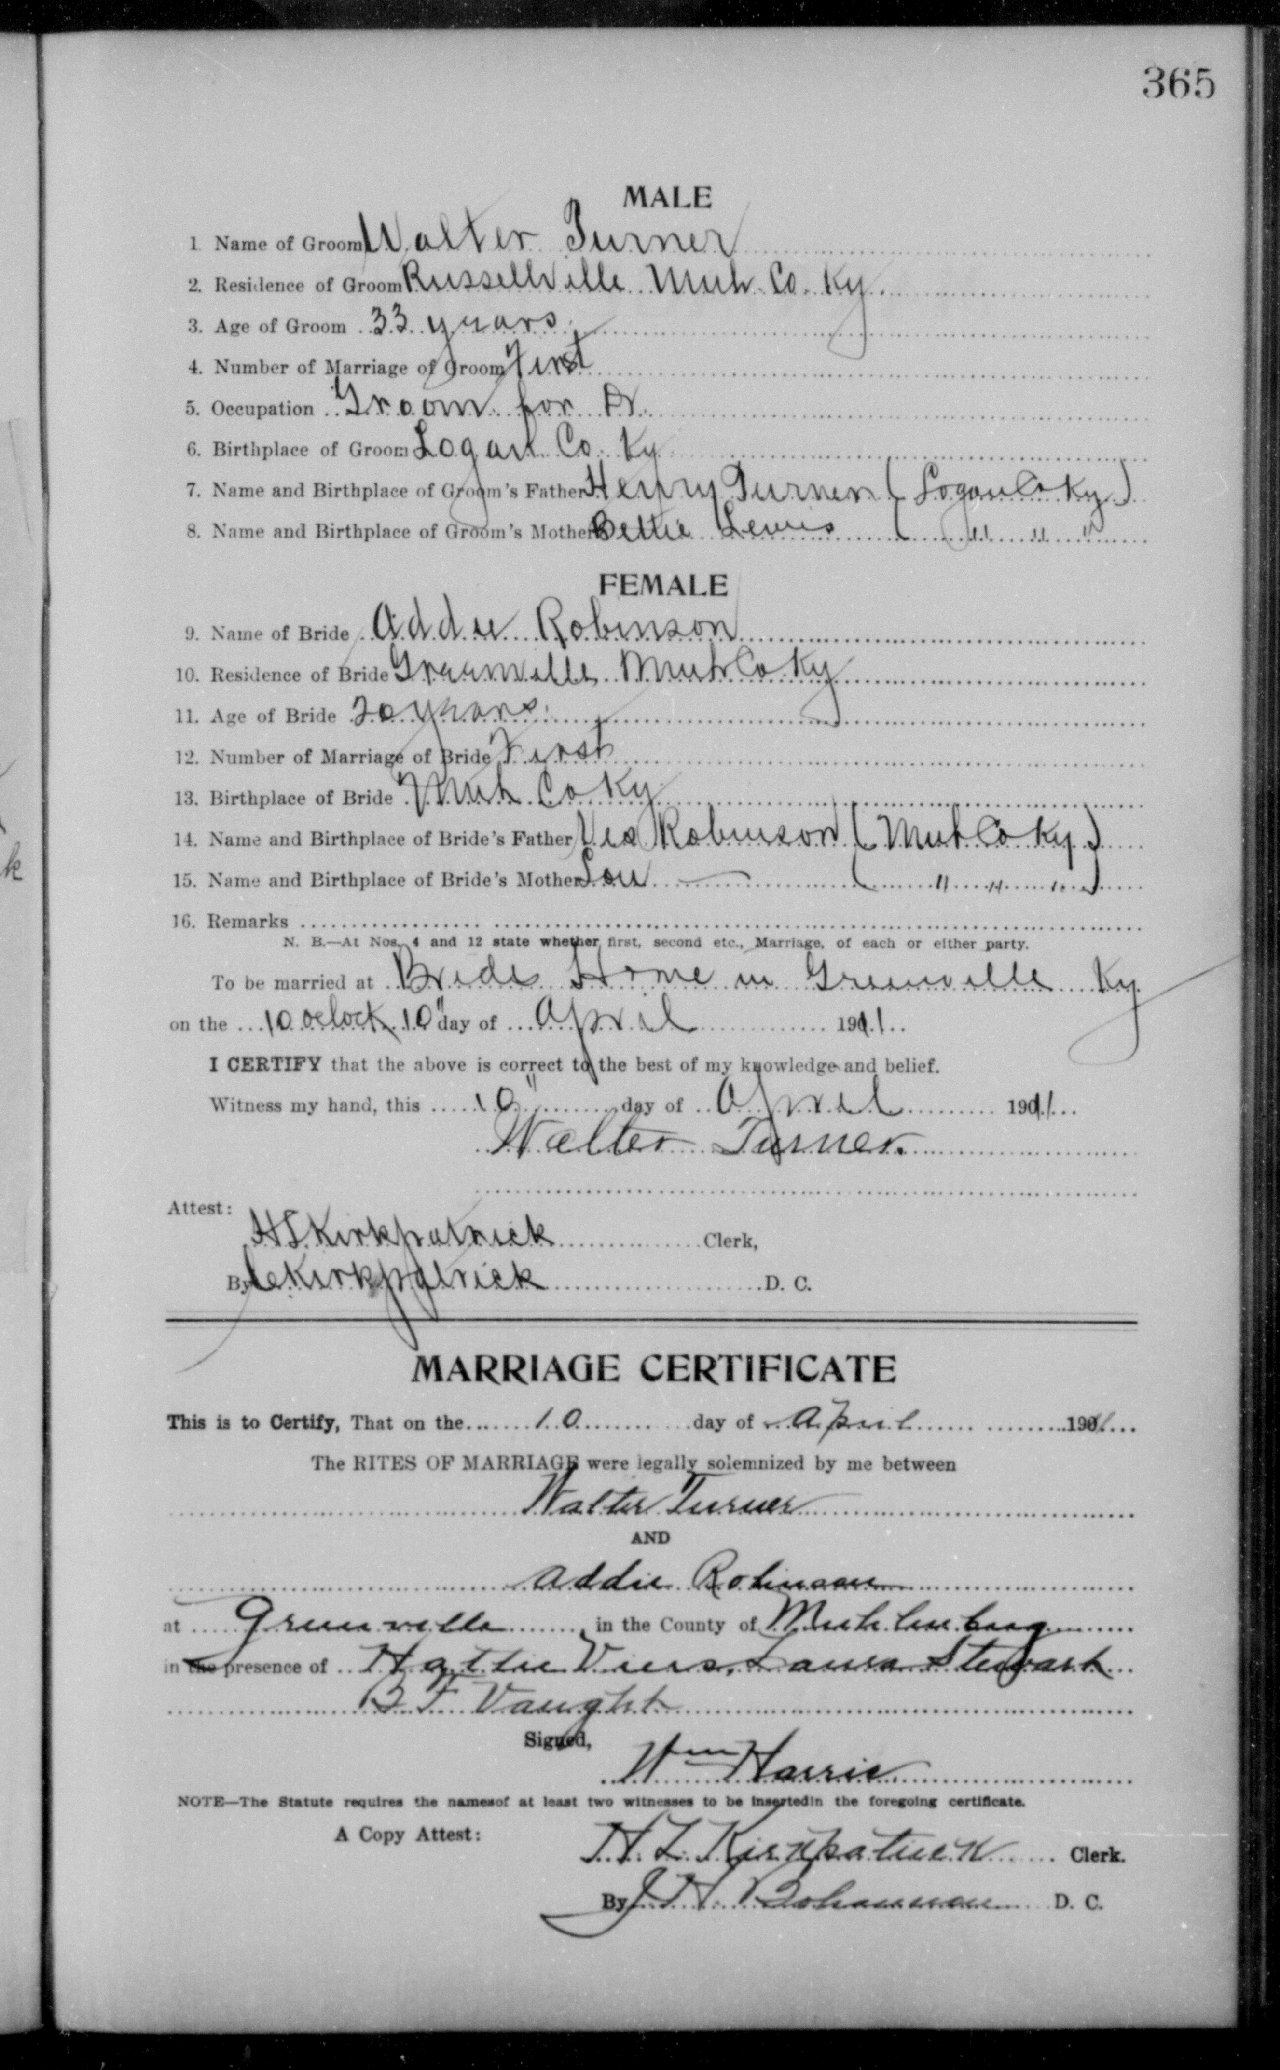 365
MALE
1 Name of Groom Walter Turner
2. Residence of Groom Russellville Muh. Co. Ky.
3. Age of Groom 33 years.
4. Number of Marriage of Groom First
5. Occupation Groom for Dr.
6. Birthplace of Groom Logan Co. Ky
7. Name and Birthplace of Groom's Father Henry Turner ( Logan Co Ky )
8. Name and Birthplace of Groom's Mother Bettie Lewis ( " " " )
FEMALE
9. Name of Bride Addie Robinson
10. Residence of Bride Greenville Muh Co Ky
11. Age of Bride 20 years.
12. Number of Marriage of Bride First
13. Birthplace of Bride Muh Co Ky
14. Name and Birthplace of Bride's Father Robinson ( Muh Co Ky )
15. Name and Birthplace of Bride's Mother Lou — ( " " " )
16. Remarks
N. B.—At Nos. 4 and 12 state whether first, second etc., Marriage, of each or either party.
To be married at Brides Home in Greenville Ky.
on the 10 oclock 10" day of April 1911
I CERTIFY that the above is correct to the best of my knowledge and belief.
Witness my hand, this 10" day of April 1911
Walter Turner.
Attest:
H L Kirkpatrick Clerk,
By C Kirkpatrick D. C.
MARRIAGE CERTIFICATE
This is to Certify, That on the 10 day of April 1911
The RITES OF MARRIAGE were legally solemnized by me between
Walter Turner
AND
Addie Robinson
at Greenville in the County of Muhlenberg
in the presence of Hattie Viers, Laura Stewart
B F Vaught
Signed,
Wm Harris
NOTE—The Statute requires the namesof at least two witnesses to be insertedin the foregoing certificate.
A Copy Attest:
H. L. Kirkpatrick Clerk.
By J H Bohannon D. C.